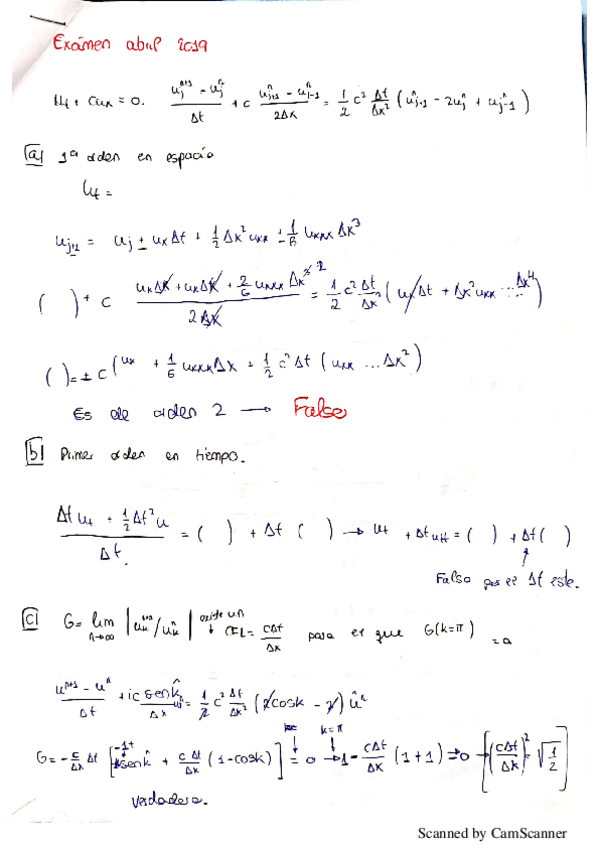 Exámen abril 2019
Ut + cux = 0. (u_j^{n+1} - u_j^n)/Δt + c (u_{j+1}^n - u_{j-1}^n)/2Δx = 1/2 c² Δt/Δx² (u_{j+1}^n - 2u_j^n + u_{j-1}^n)
a) 1ª orden en espacio
Ut =
u_{j±1} = u_j ± ux Δt + 1/2 Δx² uxx ± 1/6 uxxx Δx³
( ) + c (ux Δx + ux Δx + 2/6 uxxx Δx³ ²)/2Δx = 1/2 c² Δt/Δx² (ux Δt + Δx² uxx ... Δx⁴)
( ) = ± c (ux + 1/6 uxxx Δx = 1/2 c² Δt (uxx ... Δx²)
Es de orden 2 → Falso
b) Primer orden en tiempo.
(Δt ut + 1/2 Δt² u)/Δt. = ( ) + Δt ( ) → ut + Δt utt = ( ) + Δt ( )
Falso por el Δt este.
c) G = lim n→∞ |u_k^{n+1}/u_k^n| existe un ↓ CFL = cΔt/Δx para el que G(k=π) = 0
(u^{n+1} - u^n)/Δt + ic sen k/Δx = 1/2 c² Δt/Δx² (2 cos k - 2) û^n
k=π
G = - c/Δx Δt [ sen k + cΔt/Δx (1 - cos k) ] = 0 → 1 - cΔt/Δx (1+1) = 0 → [(cΔt/Δx)² = √(1/2)]
verdadera.
Scanned by CamScanner